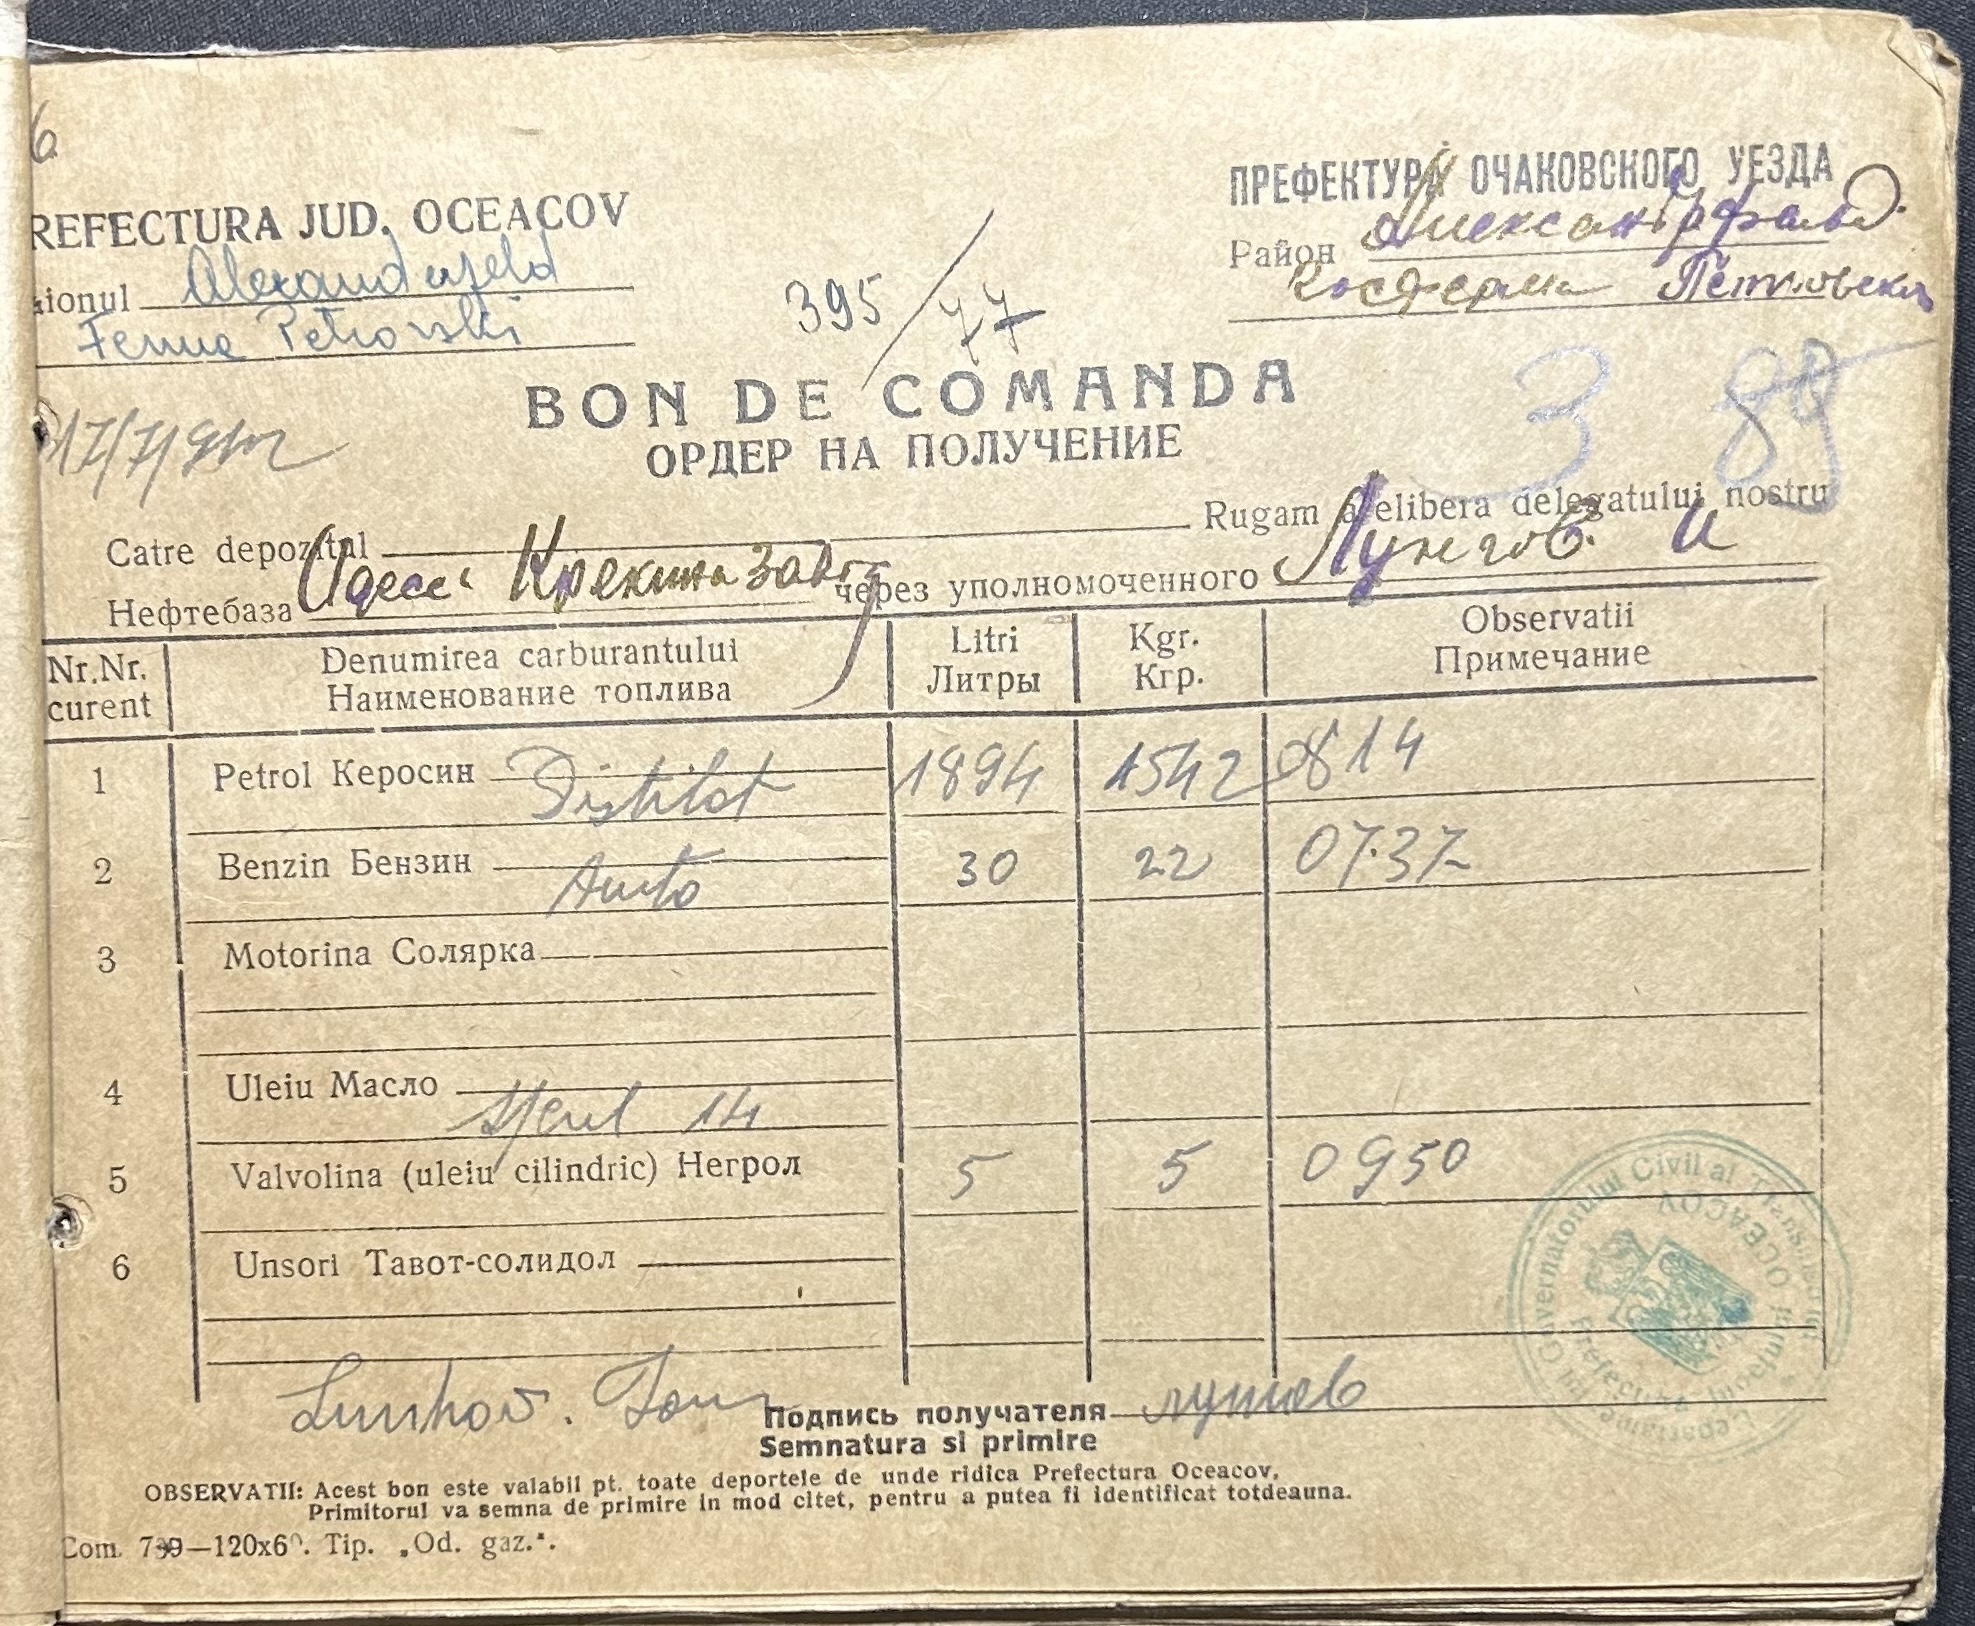 REFECTURA JUD. OCEACOV
ionul Alexanderfeld
Ferma Petrovski
ПРЕФЕКТУРА ОЧАКОВСКОГО УЕЗДА
Район Александрфельд
Госферма Петровская
395/77
17/7/942
BON DE COMANDA
ОРДЕР НА ПОЛУЧЕНИЕ
3 88
Catre depozitul Rugam a elibera delegatului nostru
Нефтебаза Одесса Крекинг завод через уполномоченного Лунгов И
Nr.Nr. curent Denumirea carburantului Наименование топлива Litri Литры Kgr. Кгр. Observatii Примечание
1 Petrol Керосин Distilat 1894 1542 0814
2 Benzin Бензин Auto 30 22 0737
3 Motorina Солярка
4 Uleiu Масло 14
5 Valvolina (uleiu cilindric) Негрол 5 5 0950
6 Unsori Тавот-солидол
Guvernatorul Civil al Transnistriei
Prefectura Judeţului OCEACOV
Подпись получателя
Semnatura si primire
OBSERVATII: Acest bon este valabil pt. toate deportele de unde ridica Prefectura Oceacov.
Primitorul va semna de primire in mod citet, pentru a putea fi identificat totdeauna.
Com. 739—120x60. Tip. „Od. gaz.".